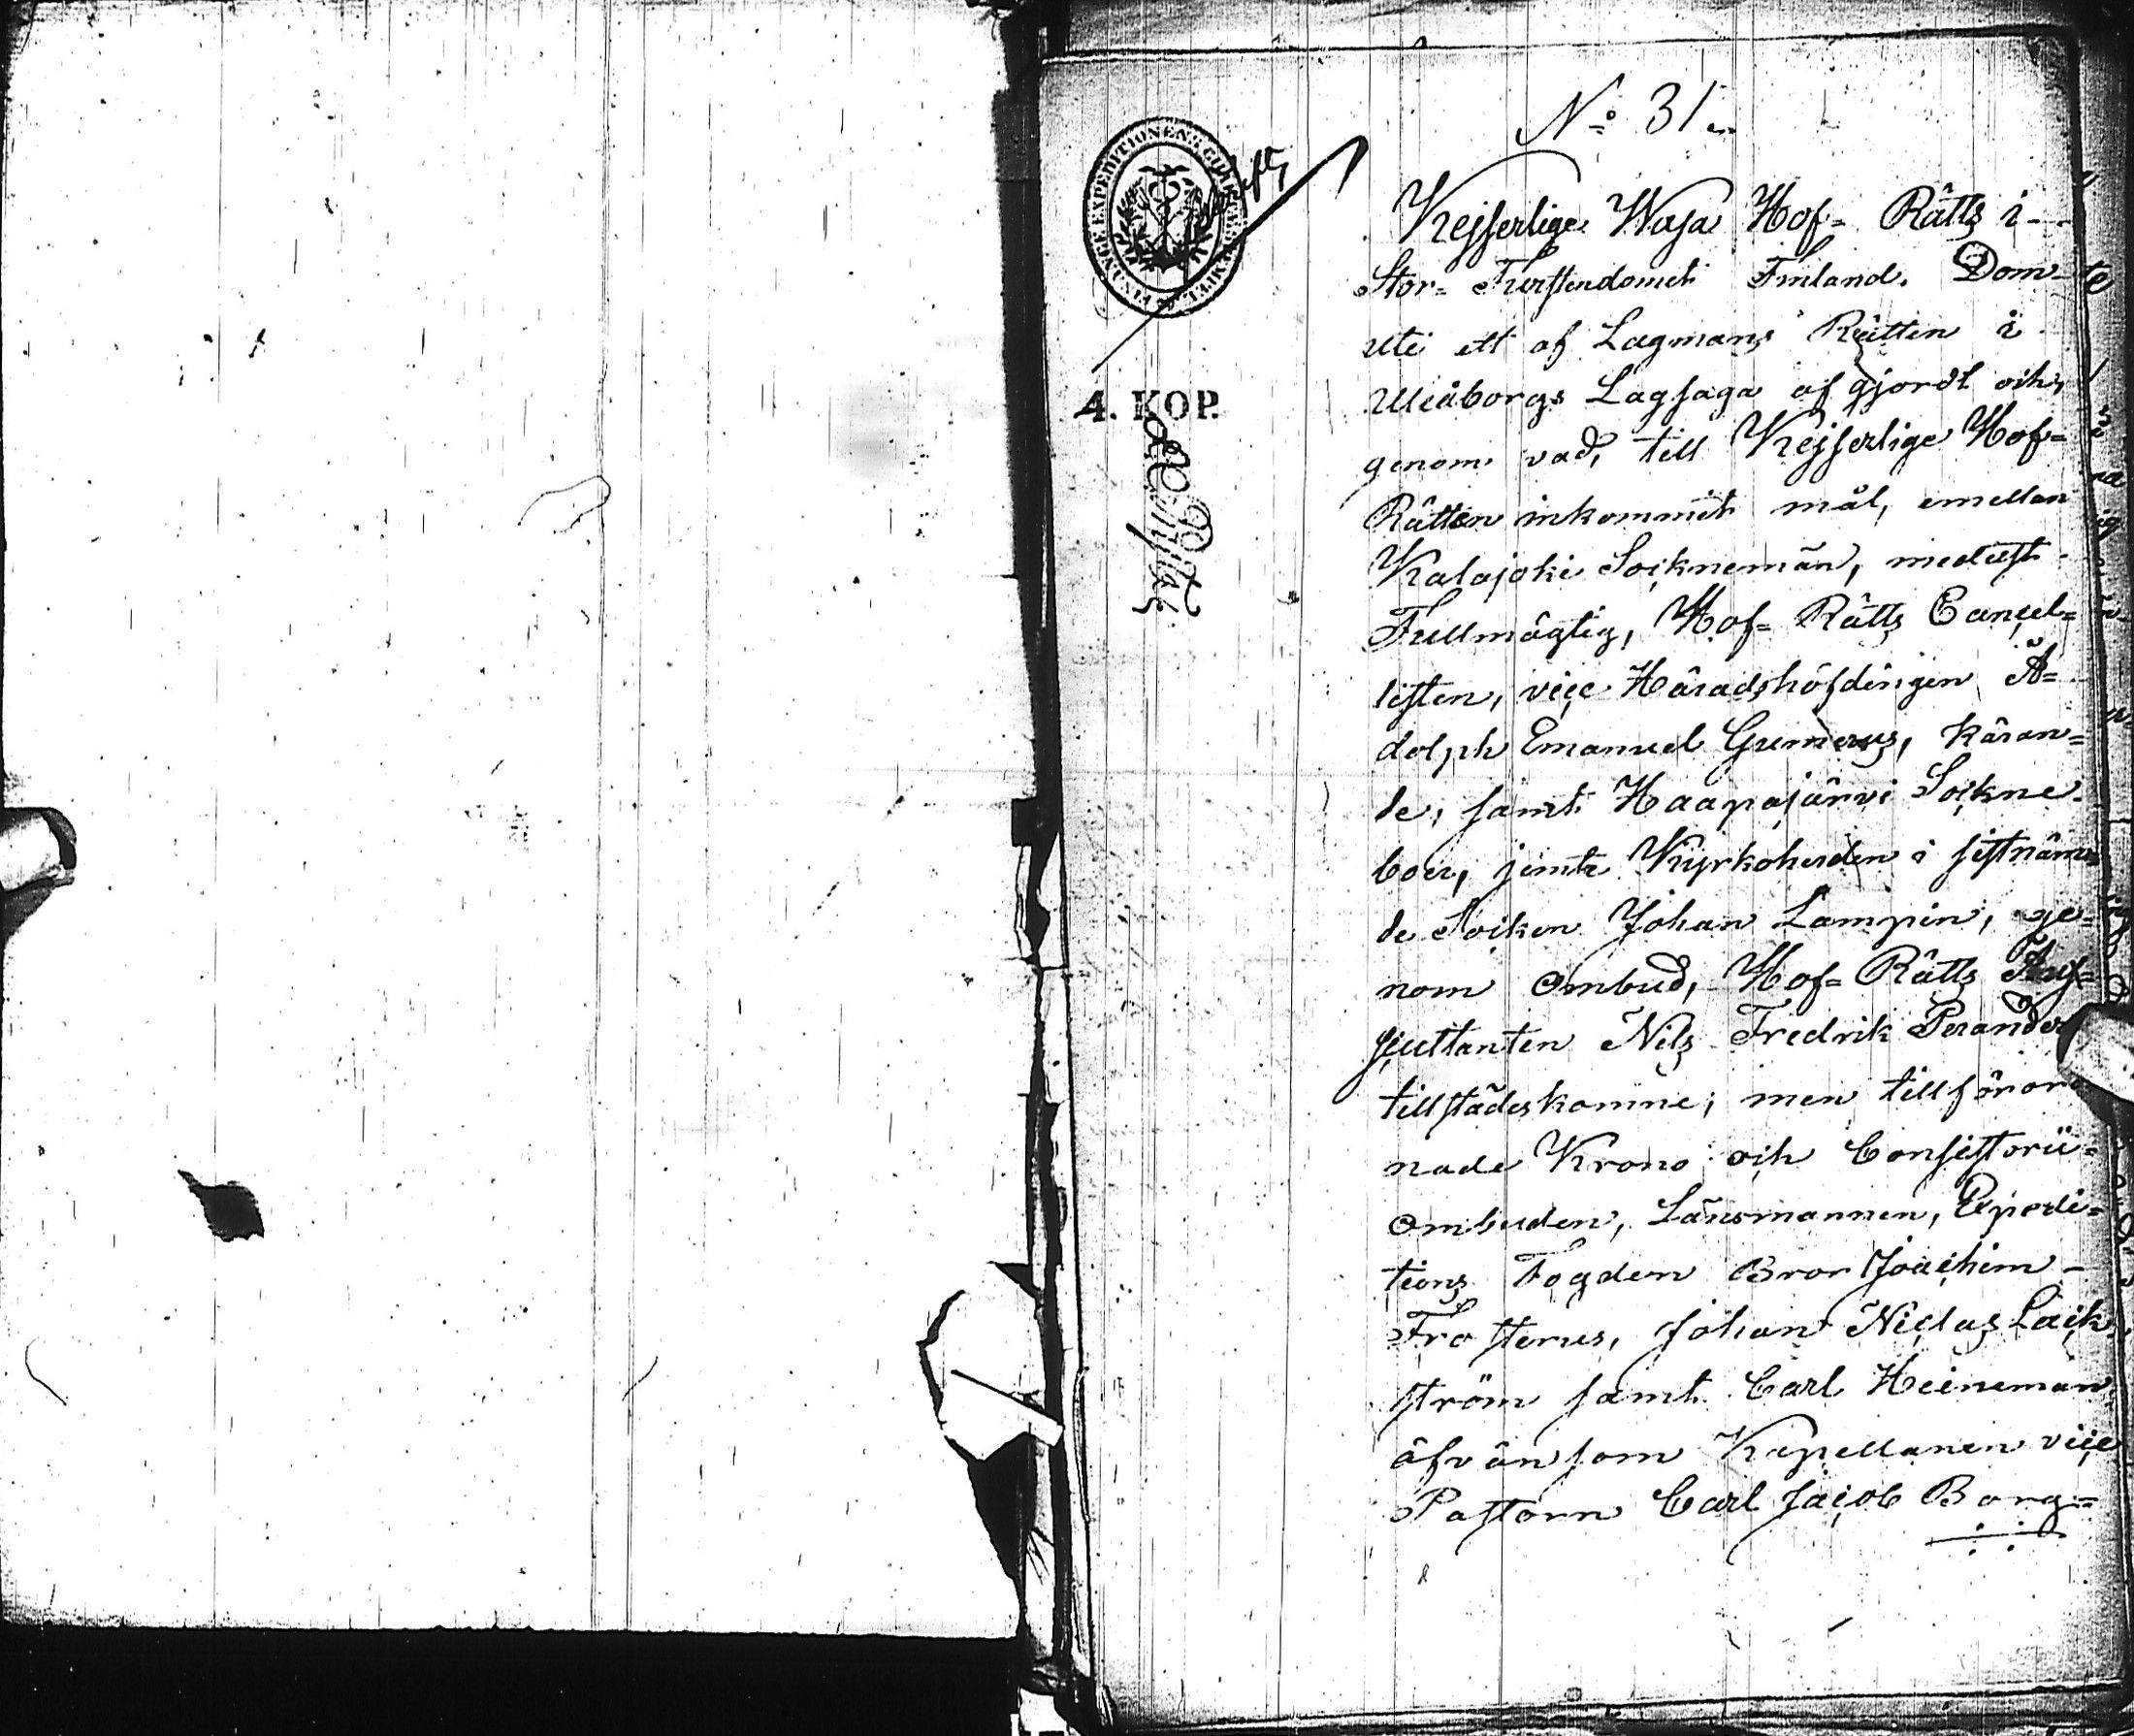 No 31.
Kejserlige Wasa Hof= Rätts i
Stor= Furstendömet Finland. Dom
uti ett af Lagmans Rätten i
Uleåborgs Lagsaga afgjordt och,
genom vad, till Kejserlige Hof=
Rätten inkommit mål, emellan
Kalajoki Socknemän, medelst
Fullmägtig, Hof= Rätts Cancel=
listen, vice Häradshöfdingen A=
dolph Emanuel Gumerus, käran=
de, samt Haapajärvi Sockne
boer, jemte Kyrkoherden i sistnämn
de Socken Johan Lampin, ge=
nom Ombud, Hof= Rätts Aus=
scultanten Nils Fredrik Perander
tillstädeskomne; men tillföror
nade Krono och Consistorii=
Ombuden, Länsmannen, Expedi=
tions Fogden Bror Joachim
Frosterus, Johan Niclas Lack
ström samt Carl Heineman
äfvänsom Kapellanen vice
Pastorn Carl Jacob Borg=
FINANCE EXPEDITIONENS CHARTÆ
4. KOP.